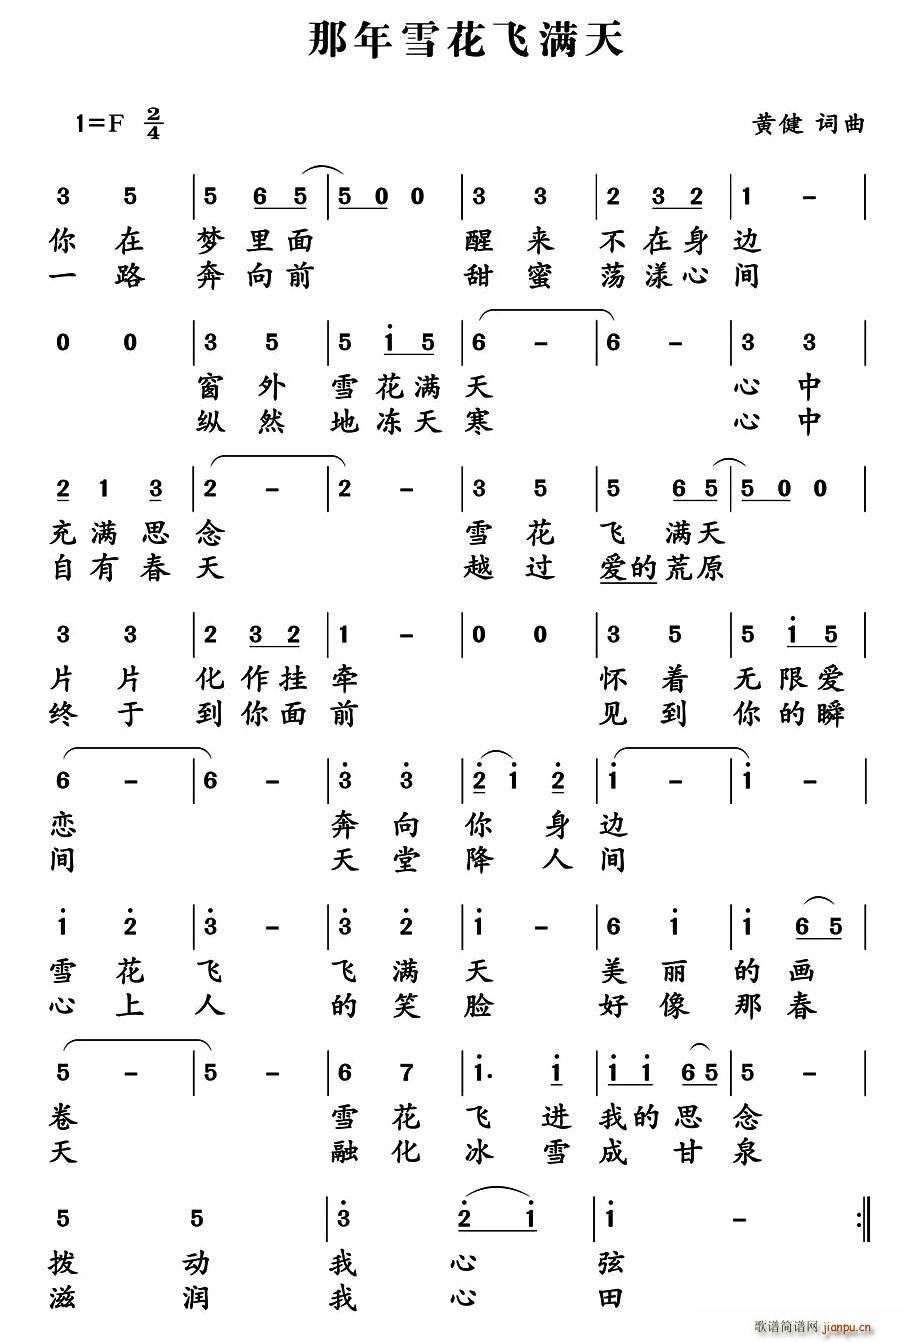 那年雪花飞满天
1=F 2/4 黄健 词曲
3 5 | 5 6 5 | 5 0 0 | 3 3 | 2 3 2 | 1 - |
你在梦里面 醒来不在身边
一路奔向前 甜蜜荡漾心间
0 0 | 3 5 | 5 i 5 | 6 - | 6 - | 3 3 |
窗外雪花满天 心中
纵然地冻天寒 心中
2 1 3 | 2 - | 2 - | 3 5 | 5 6 5 | 5 0 0 |
充满思念 雪花飞满天
自有春天 越过爱的荒原
3 3 | 2 3 2 | 1 - | 0 0 | 3 5 | 5 i 5 |
片片化作挂牵 怀着无限爱
终于到你面前 见到你的瞬
6 - | 6 - | 3 3 | 2 1 2 | i - | i - |
恋 奔向你身边
间 天堂降人间
i 2 | 3 - | 3 2 | i - | 6 i | i 6 5 |
雪花飞飞满天 美丽的画
心上人的笑脸 好像那春
5 - | 5 - | 6 7 | i. i | i i 6 5 | 5 - |
卷 雪花飞进我的思念
天 融化冰雪成甘泉
5 5 | 3 2 i | i - :||
拨动我心弦
滋润我心田
歌谱简谱网
jianpu.cn